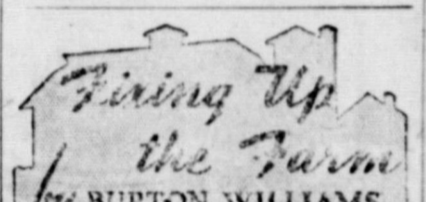 Fixing Up
the Farm
by BURTON WILLIAMS